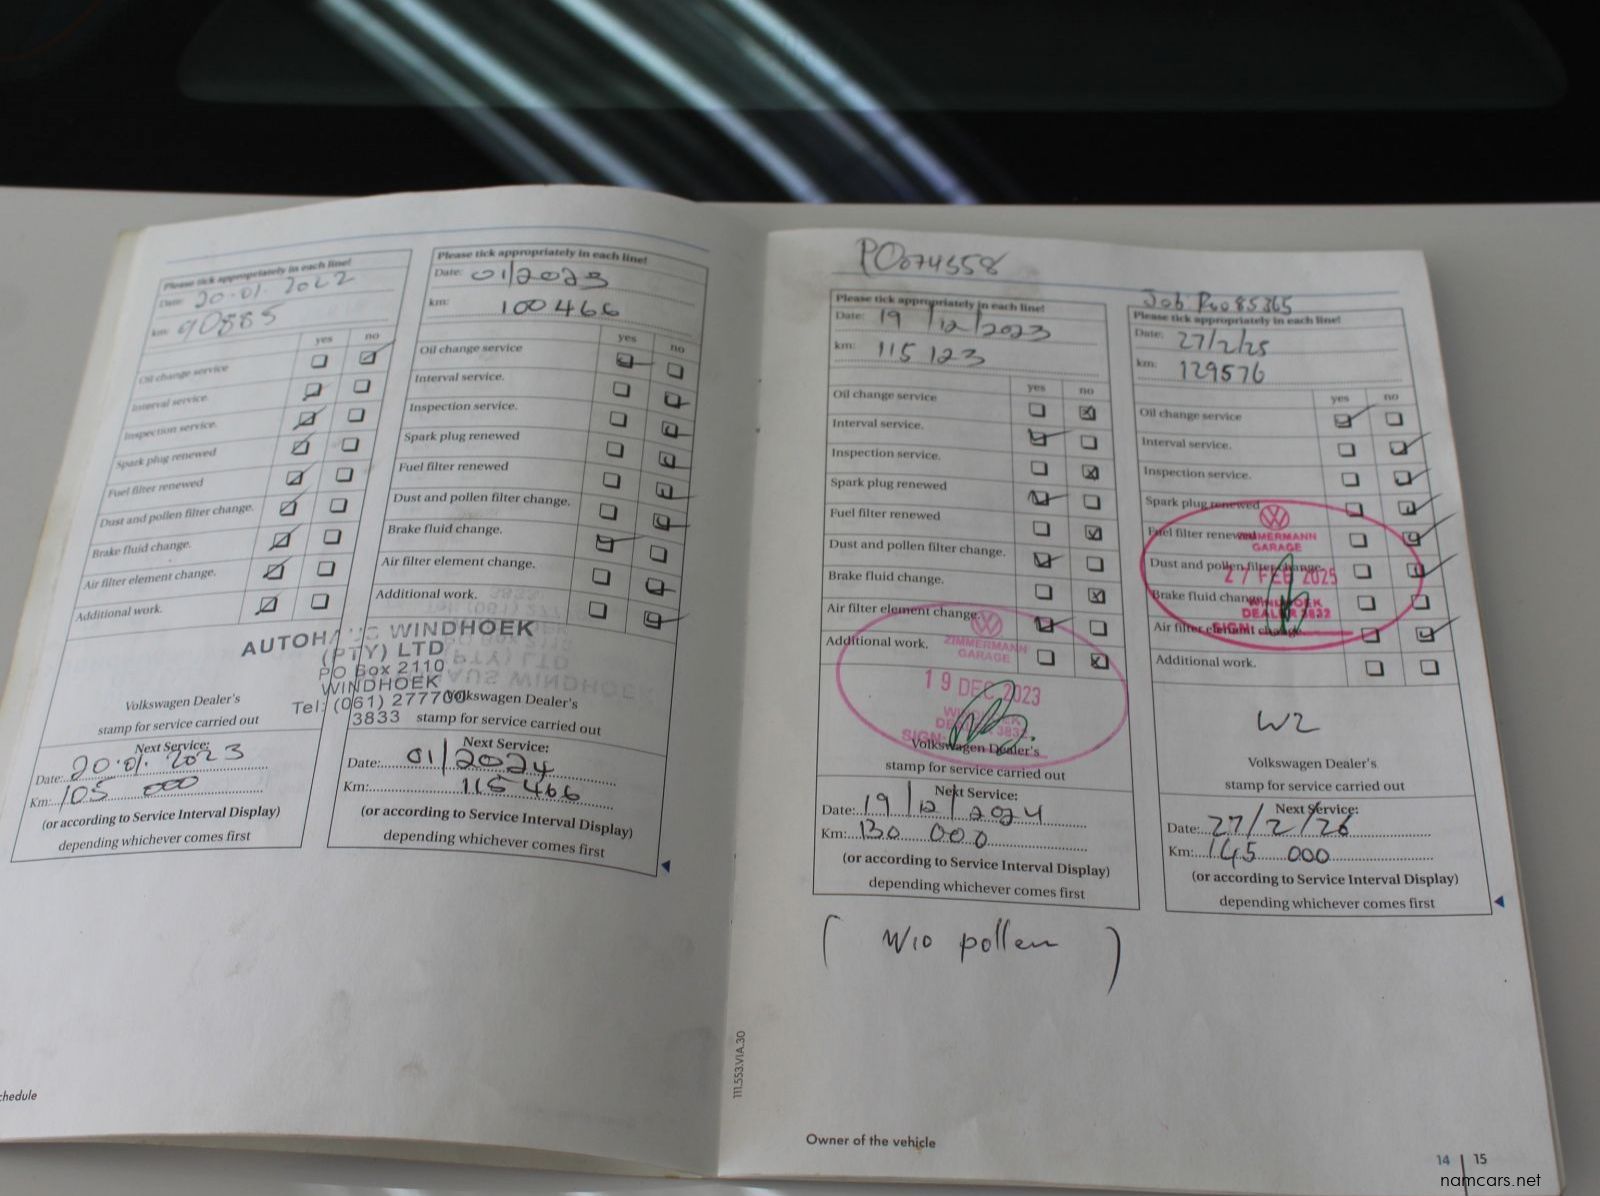 Please tick appropriately in each line!
Date: 20.01.2022
km: 90885
yes no
Oil change service
Interval service.
Inspection service.
Spark plug renewed
Fuel filter renewed
Dust and pollen filter change.
Brake fluid change.
Air filter element change.
Additional work.
AUTOHAUS WINDHOEK
(PTY) LTD
PO Box 2110
WINDHOEK
Tel: (061) 277700
3833
Volkswagen Dealer's
stamp for service carried out
Next Service:
Date: 20.01.2023
Km: 105 000
(or according to Service Interval Display)
depending whichever comes first
chedule
Please tick appropriately in each line!
Date: 01/2023
km: 100466
yes no
Oil change service
Interval service.
Inspection service.
Spark plug renewed
Fuel filter renewed
Dust and pollen filter change.
Brake fluid change.
Air filter element change.
Additional work.
Volkswagen Dealer's
stamp for service carried out
Next Service:
Date: 01/2024
Km: 115466
(or according to Service Interval Display)
depending whichever comes first
111.553.VIA.30
PO074558
Please tick appropriately in each line!
Date: 19/12/2023
km: 115 123
yes no
Oil change service
Interval service.
Inspection service.
Spark plug renewed
Fuel filter renewed
Dust and pollen filter change.
Brake fluid change.
Air filter element change.
Additional work.
ZIMMERMANN
GARAGE
19 DEC 2023
WINDHOEK
DEALER 3832
SIGN:
Volkswagen Dealer's
stamp for service carried out
Next Service:
Date: 19/12/2024
Km: 130 000
(or according to Service Interval Display)
depending whichever comes first
( W10 pollen )
Owner of the vehicle
Job
Please tick appropriately in each line!
Date: 27/2/25
km: 129576
yes no
Oil change service
Interval service.
Inspection service.
Spark plug renewed
Fuel filter renewed
Dust and pollen filter change.
Brake fluid change.
Air filter element change.
Additional work.
ZIMMERMANN
GARAGE
27 FEB 2025
WINDHOEK
DEALER 3832
SIGN:
W2
Volkswagen Dealer's
stamp for service carried out
Next Service:
Date: 27/2/26
Km: 145 000
(or according to Service Interval Display)
depending whichever comes first
14 | 15
namcars.net